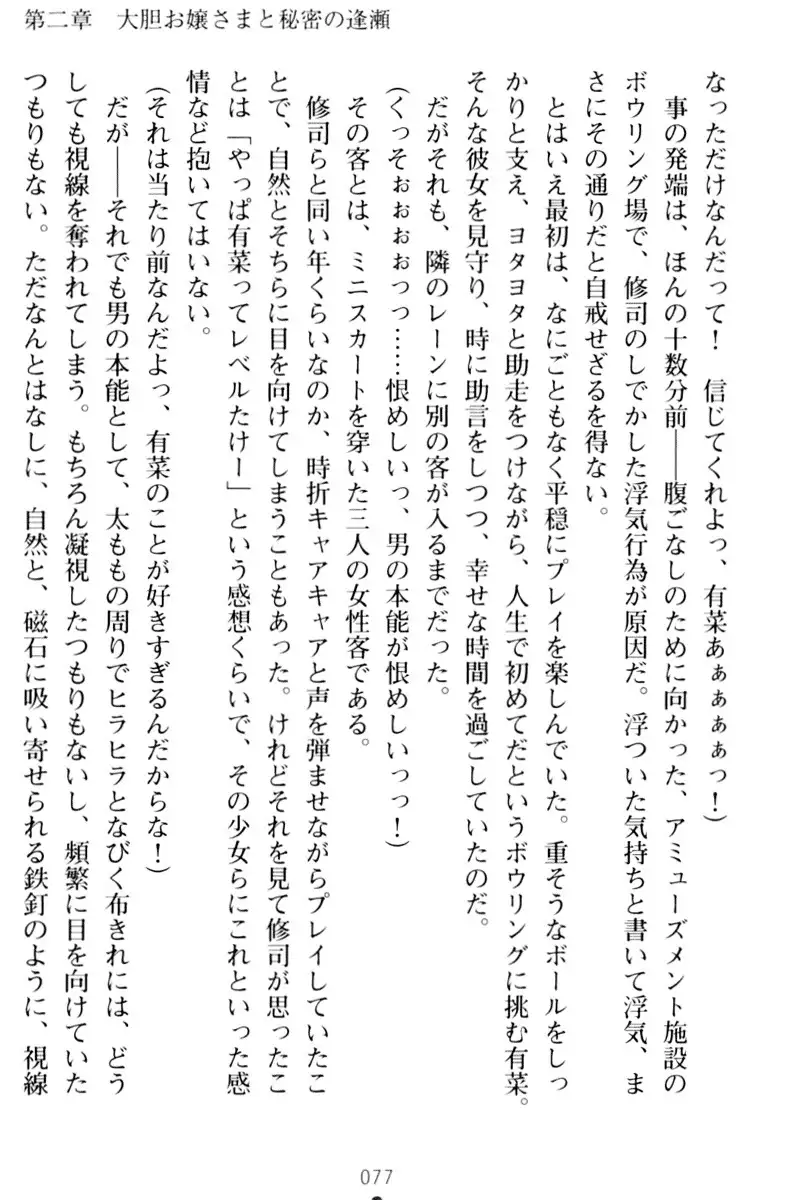 第二章　大胆お嬢さまと秘密の逢瀬
なっただけなんだって！　信じてくれよっ、有菜あぁぁぁぁっ！）
　事の発端は、ほんの十数分前――腹ごなしのために向かった、アミューズメント施設の
ボウリング場で、修司のしでかした浮気行為が原因だ。浮ついた気持ちと書いて浮気、ま
さにその通りだと自戒せざるを得ない。
　とはいえ最初は、なにごともなく平穏にプレイを楽しんでいた。重そうなボールをしっ
かりと支え、ヨタヨタと助走をつけながら、人生で初めてだというボウリングに挑む有菜。
そんな彼女を見守り、時に助言をしつつ、幸せな時間を過ごしていたのだ。
　だがそれも、隣のレーンに別の客が入るまでだった。
（くっそぉぉぉぉっっ……恨めしいっ、男の本能が恨めしいっっ！）
　その客とは、ミニスカートを穿いた三人の女性客である。
　修司らと同い年くらいなのか、時折キャアキャアと声を弾ませながらプレイしていたこ
とで、自然とそちらに目を向けてしまうこともあった。けれどそれを見て修司が思ったこ
とは「やっぱ有菜ってレベルたけー」という感想くらいで、その少女らにこれといった感
情など抱いてはいない。
（それは当たり前なんだよっ、有菜のことが好きすぎるんだからな！）
　だが――それでも男の本能として、太ももの周りでヒラヒラとなびく布きれには、どう
しても視線を奪われてしまう。もちろん凝視したつもりもないし、頻繁に目を向けていた
つもりもない。ただなんとはなしに、自然と、磁石に吸い寄せられる鉄釘のように、視線
077